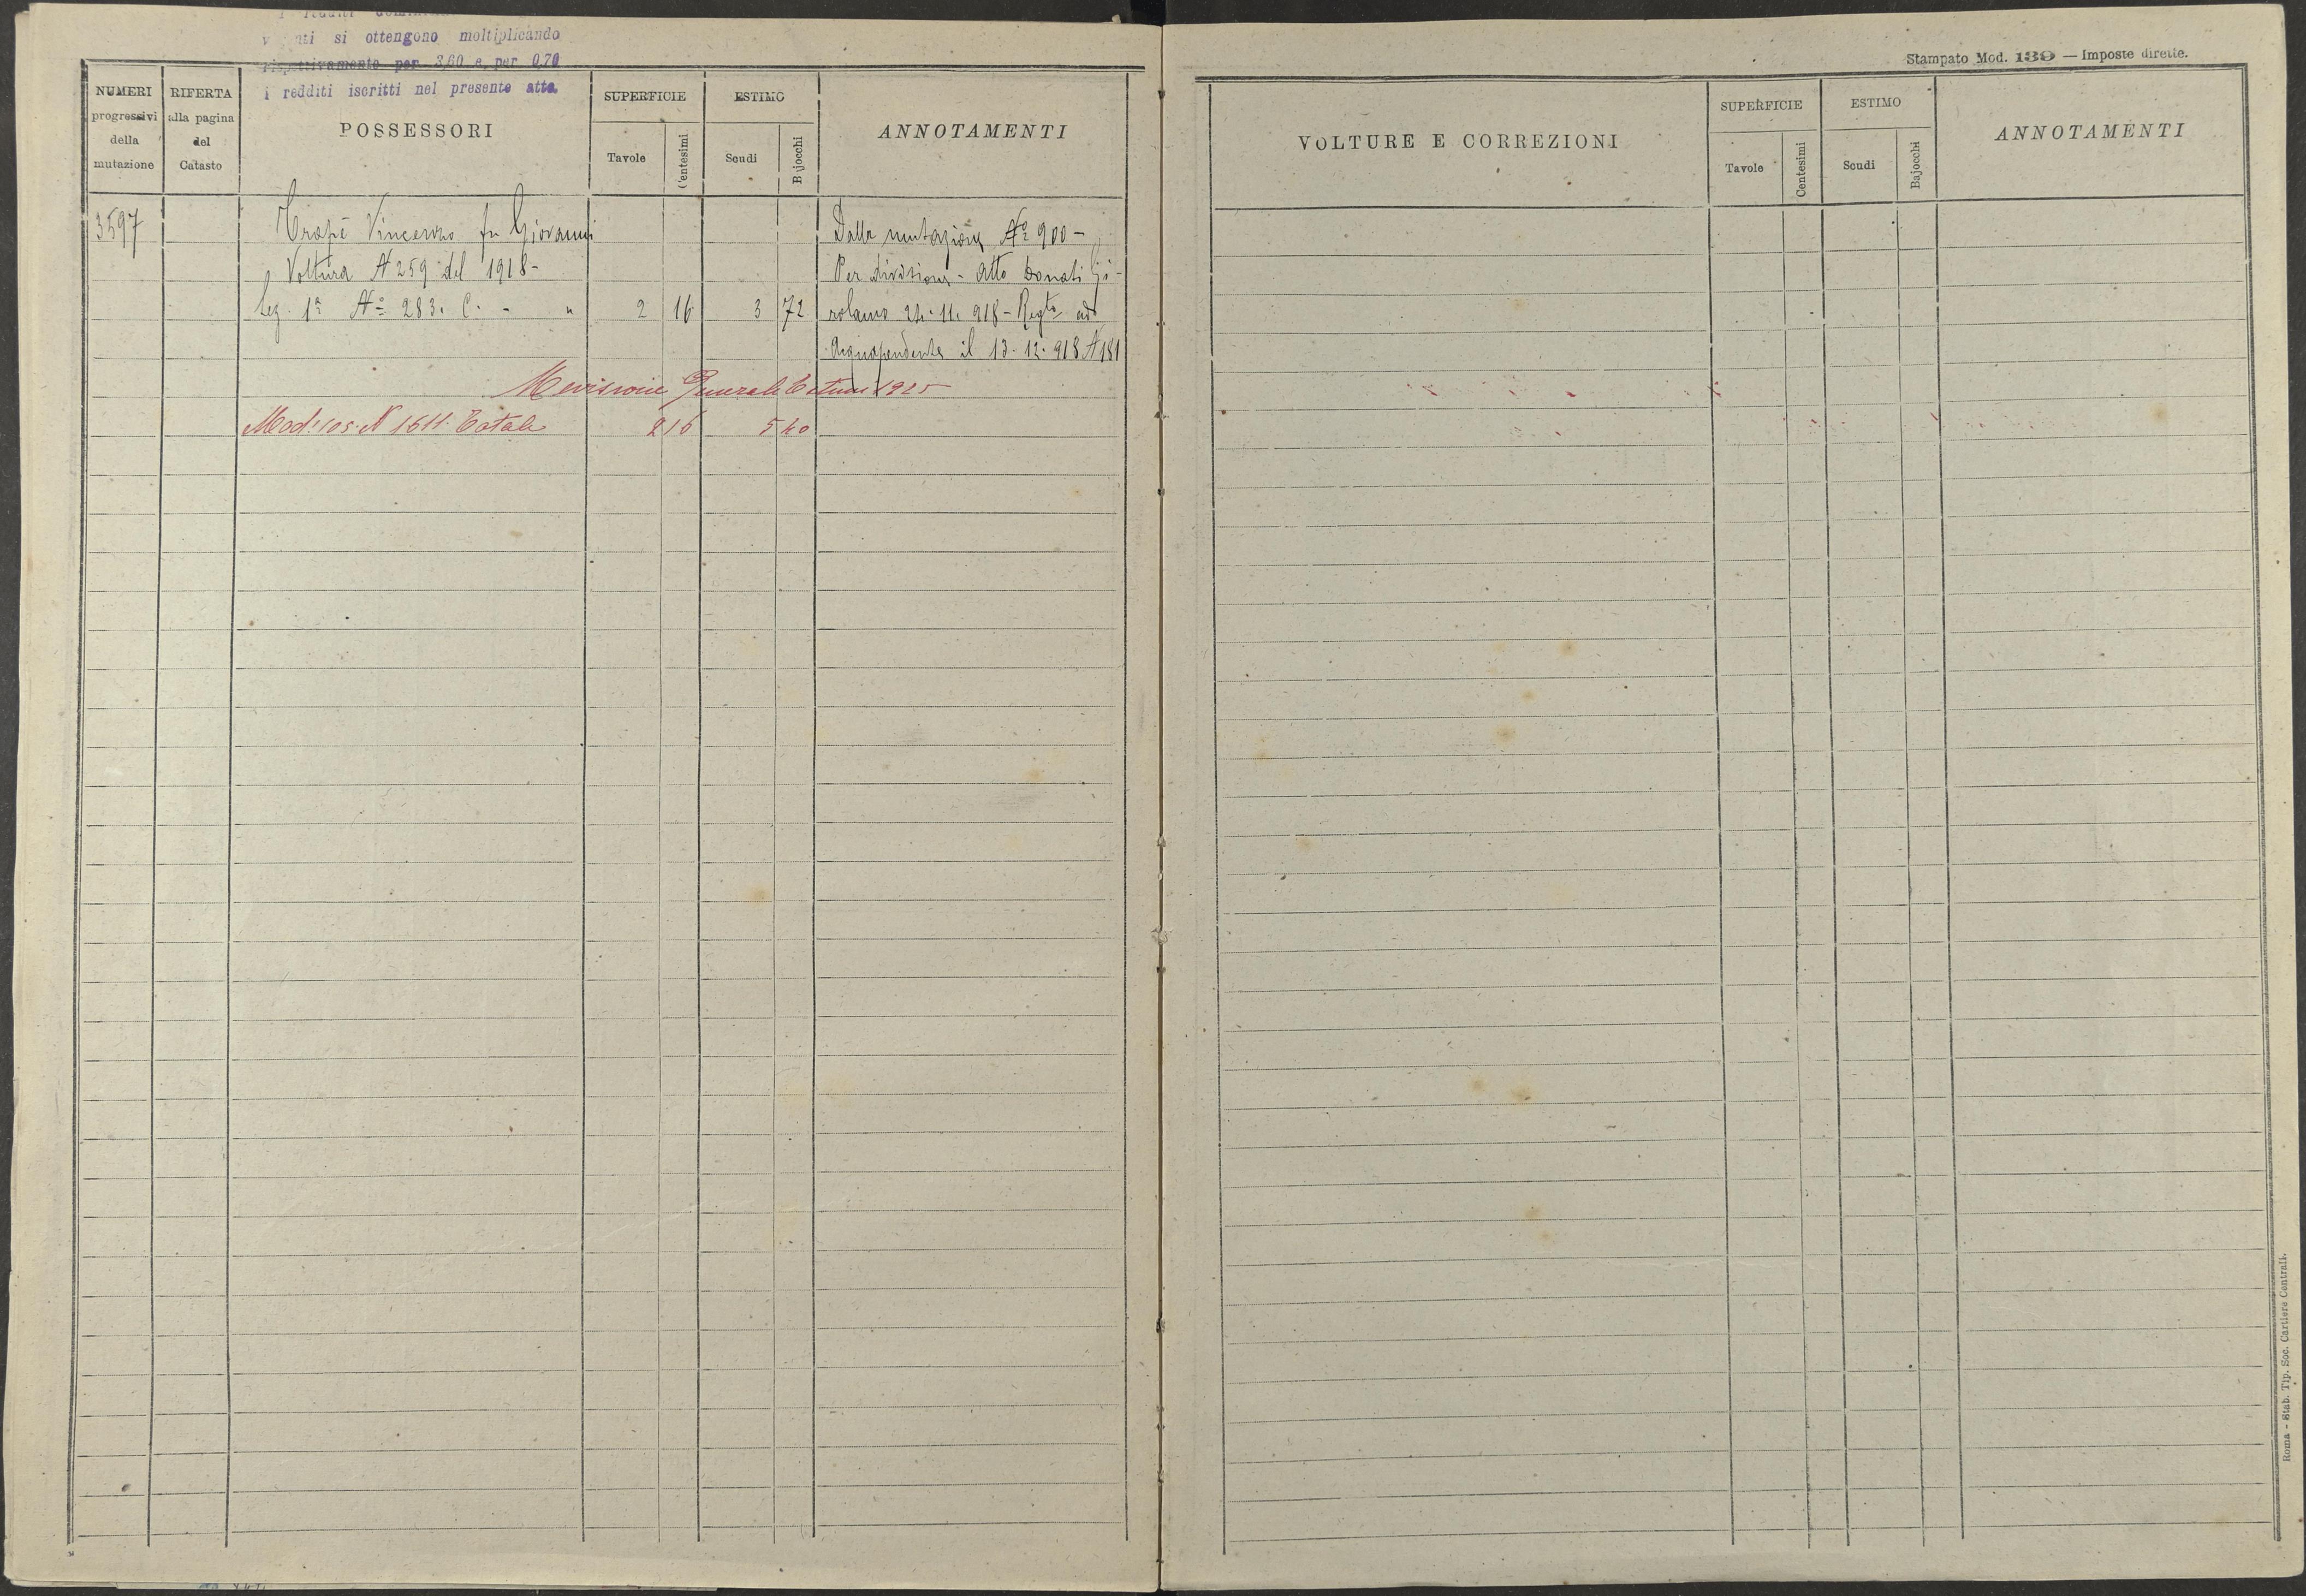 si ottengono moltiplicando
rispettivamente per 3,60 e per 0,70
i redditi iscritti nel presente atto.
NUMERI
progressivi
della
mutazione
RIFERTA
alla pagina
del
Catasto
POSSESSORI
SUPERFICIE
Tavole
Centesimi
ESTIMO
Scudi
Bajocchi
ANNOTAMENTI
3597
Tropè Vincenzo fu Giovanni
Voltura N 259 del 1918 -
Sez. 1ª Nº 283. C. - "
2 16 3 72
Dalla mutazione Nº 900 -
Per divisione - Atto Donati Gi-
rolamo 24. 11. 918 - Regto ad
Acquapendente il 13. 12. 918 N 181
Revisione Generale Estimi 1925
Mod: 105 N 1611. Totale 2 16 5 40
Stampato Mod. 139 — Imposte dirette.
VOLTURE E CORREZIONI
SUPERFICIE
Tavole
Centesimi
ESTIMO
Scudi
Bajocchi
ANNOTAMENTI
Roma - Stab. Tip. Soc. Cartiere Centrali.